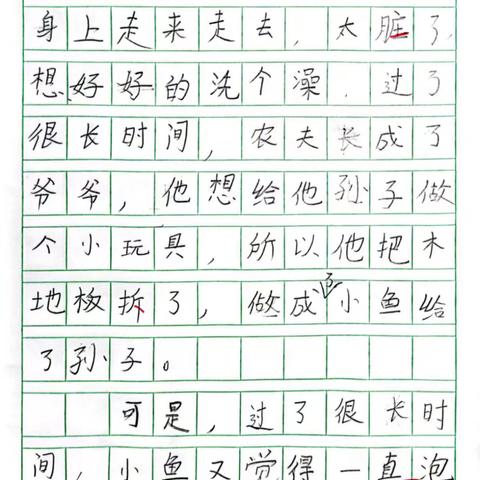 身上走来走去，太脏了，
想好好的洗个澡．过了
很长时间，农夫长成了
爷爷，他想给他孙子做
个小玩具，所以他把木
地板拆了，做成小鱼给
了孙子。
可是，过了很长时
间，小鱼又觉得一直泡